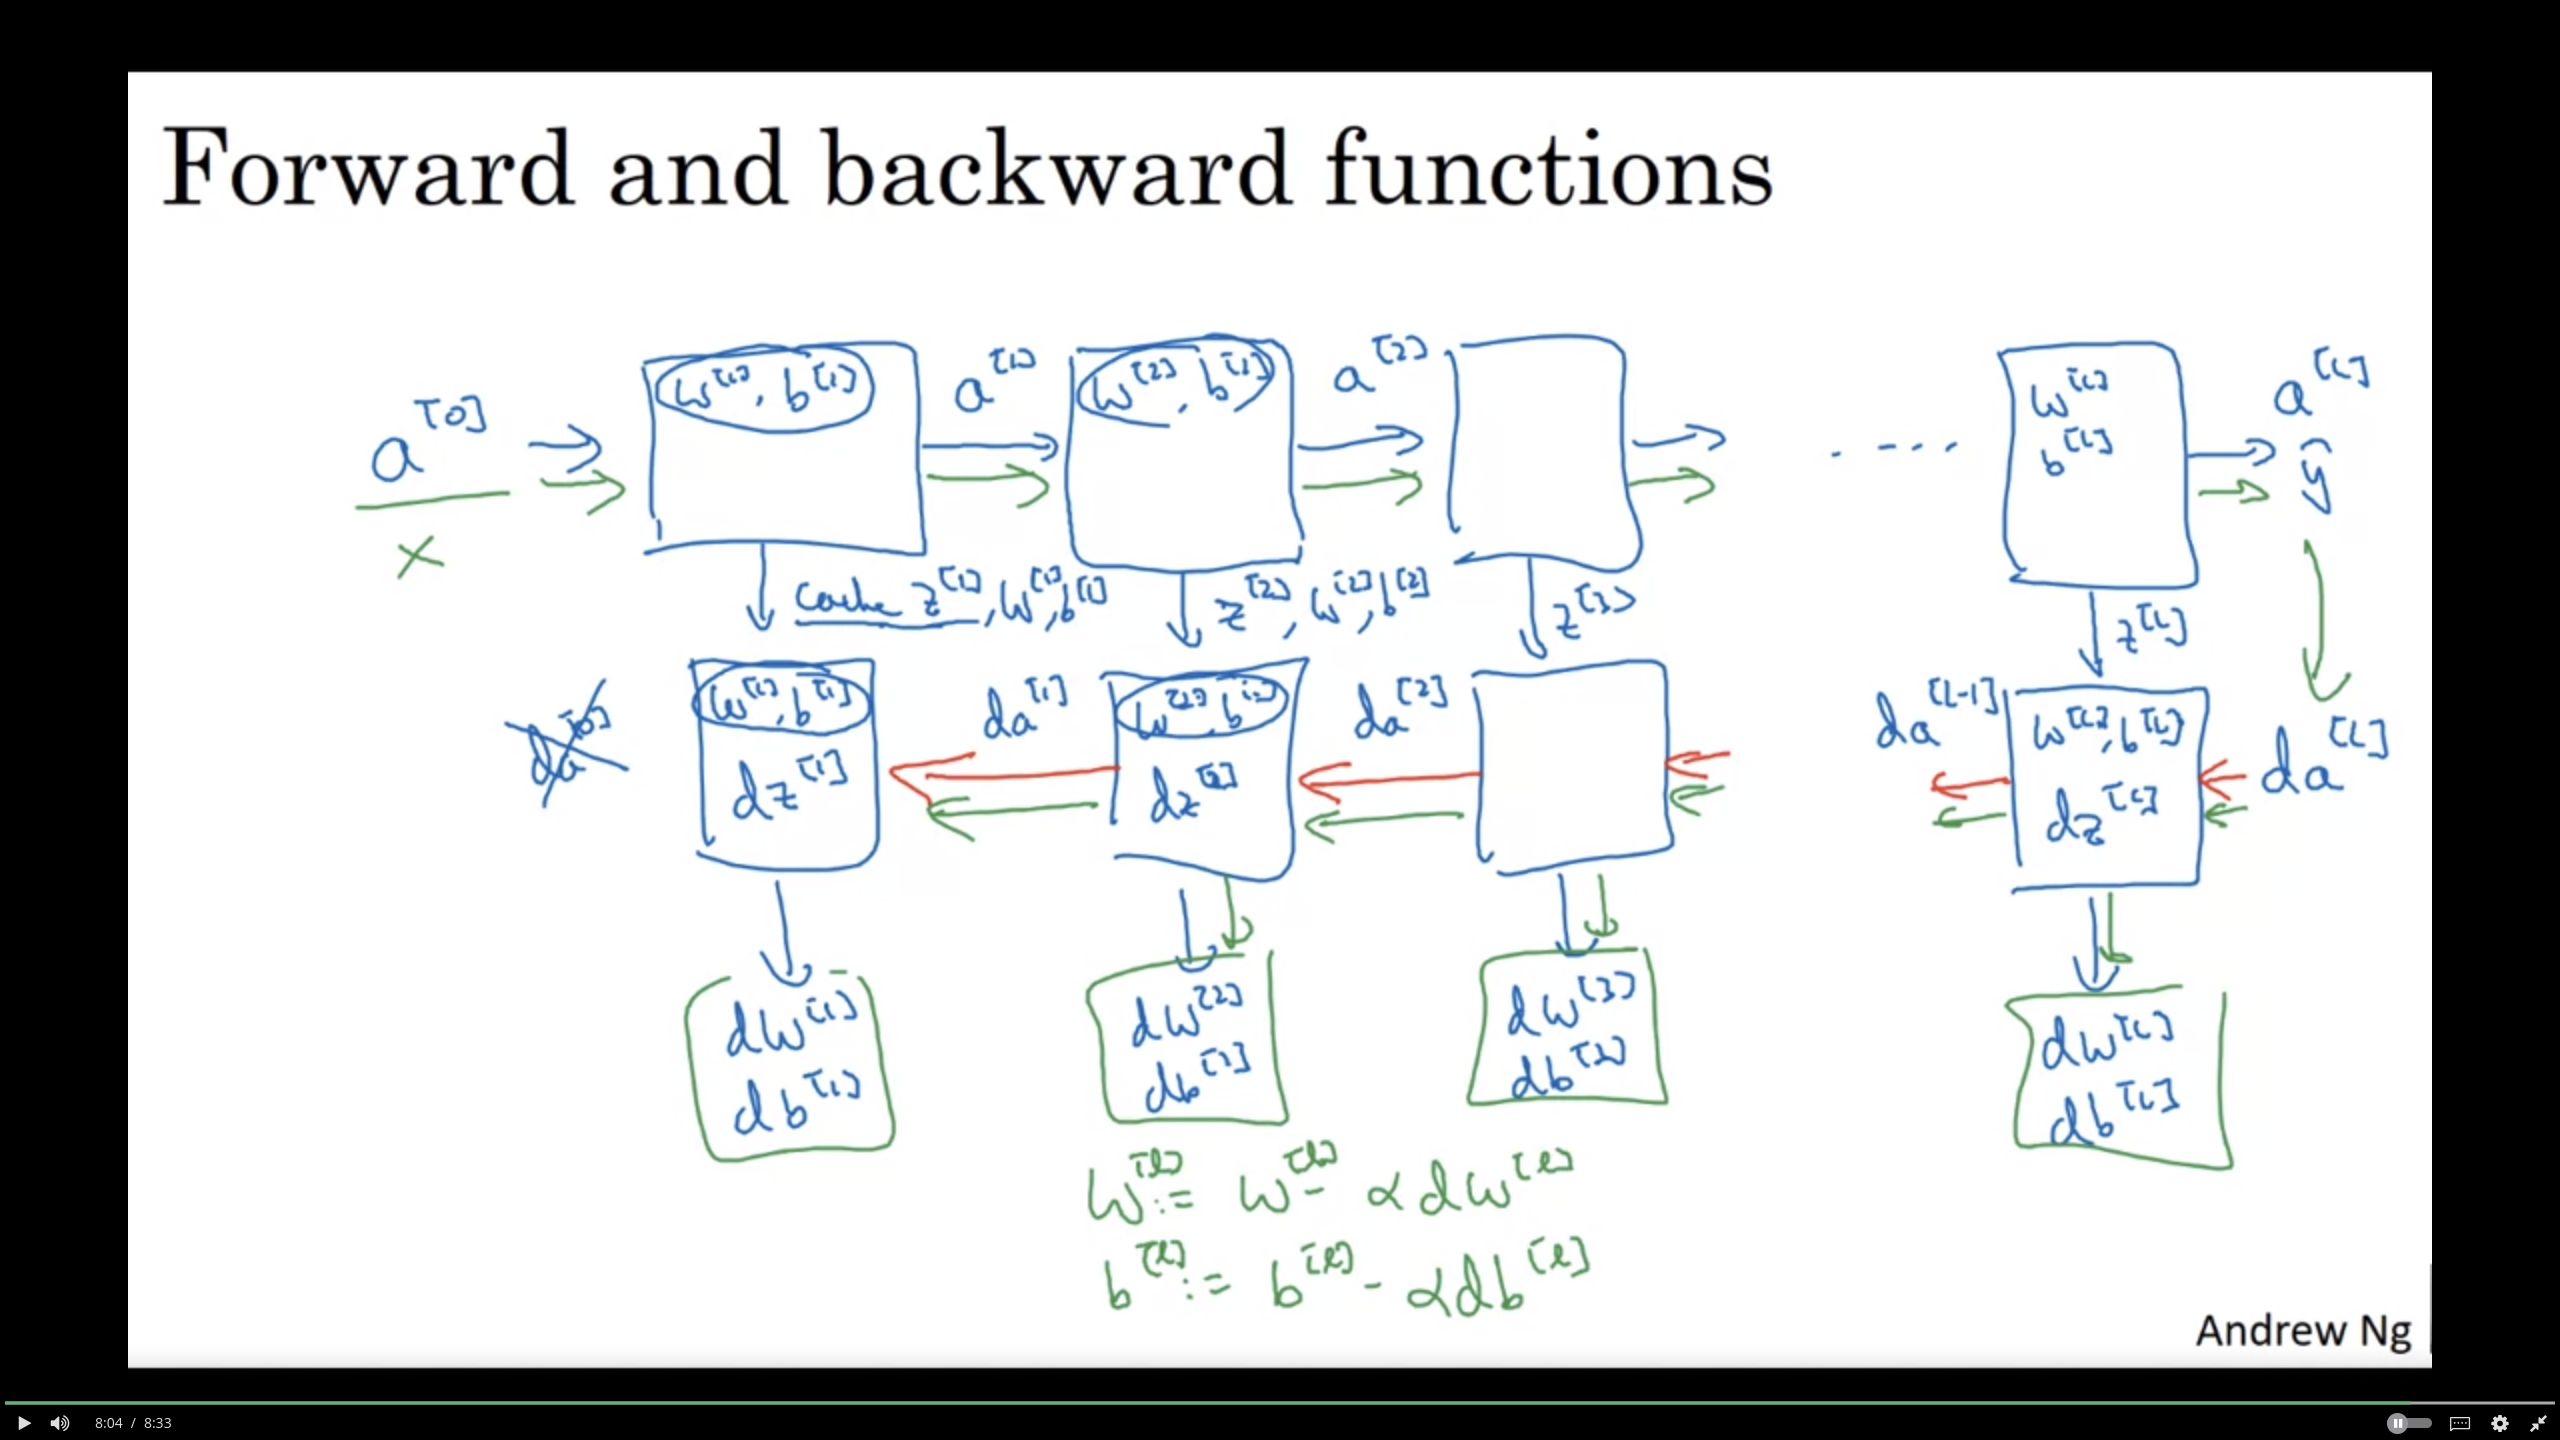 Forward and backward functions
a^[0]
x
w^[1], b^[1]
a^[1]
w^[2], b^[2]
a^[2]
w^[L]
b^[L]
a^[L]
ŷ
cache z^[1], w^[1], b^[1]
z^[2], w^[2], b^[2]
z^[3]
z^[L]
da^[0]
w^[1], b^[1]
dz^[1]
da^[1]
w^[2], b^[2]
dz^[2]
da^[2]
da^[L-1]
w^[L], b^[L]
dz^[L]
da^[L]
dw^[1]
db^[1]
dw^[2]
db^[2]
dw^[3]
db^[3]
dw^[L]
db^[L]
w^[l] := w^[l] - αdw^[l]
b^[l] := b^[l] - αdb^[l]
Andrew Ng
8:04 / 8:33